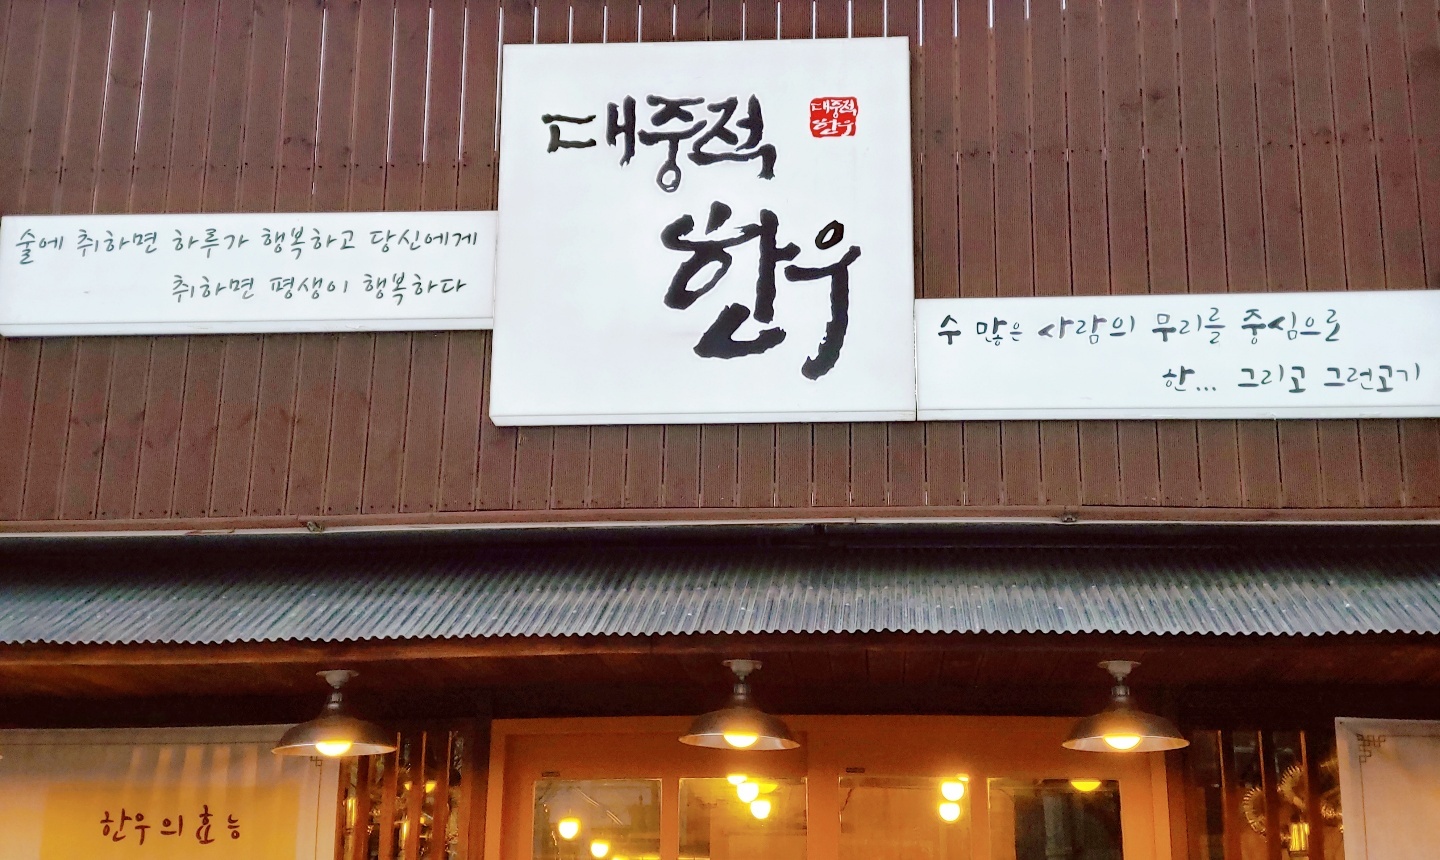 대중적
한우
대중적
한우
술에 취하면 하루가 행복하고 당신에게
취하면 평생이 행복하다
수 많은 사람의 무리를 중심으로
한... 그리고 그런고기
한우의 효능